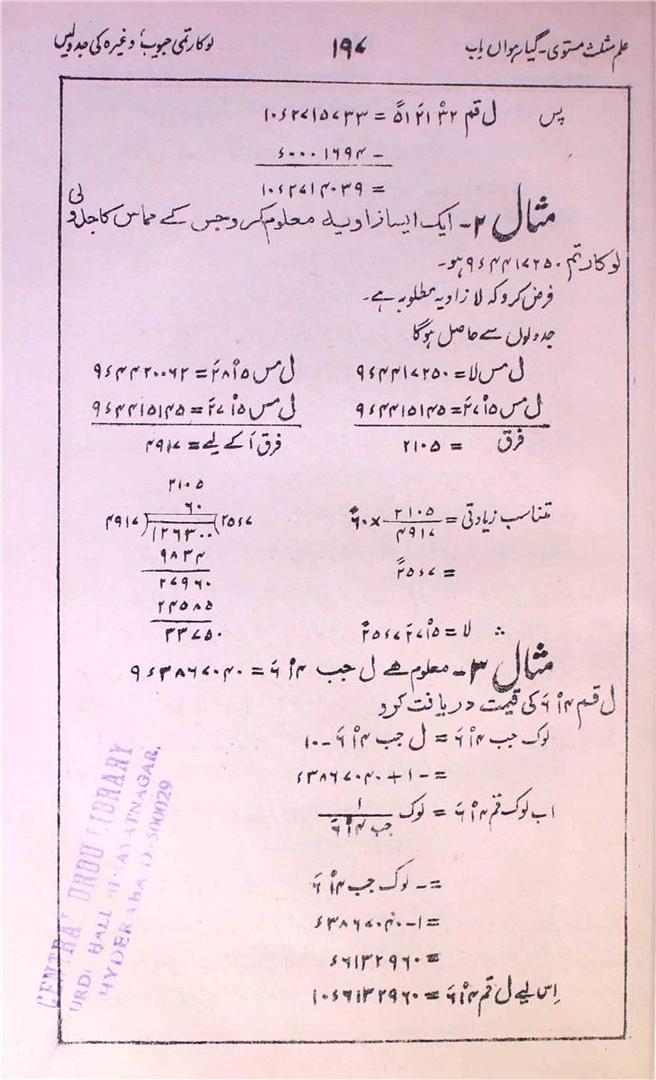 علم مثلث مستوی۔ گیارہواں باب ۱۹۷ لوکارتمی جیوب وغیرہ کی جدولیں
پس ل قم ۳۲° ۲۱′ ۵۱″ = ۱۰ء۲۷۱۵۷۳۳
− ء۰۰۰۱۶۹۴
= ۱۰ء۲۷۱۴۰۳۹
مثال ۲۔ ایک ایسا زاویہ معلوم کرو جس کے مماس کا جدولی
لوکارتم ۹ء۴۴۱۷۲۵۰ ہو۔
فرض کرو کہ لا زاویہ مطلوبہ ہے۔
جدولوں سے حاصل ہوگا
ل مس لا = ۹ء۴۴۱۷۲۵۰ ل مس ۱۵° ۲۸′ = ۹ء۴۴۲۰۰۶۲
ل مس ۱۵° ۲۷′ = ۹ء۴۴۱۵۱۴۵ ل مس ۱۵° ۲۷′ = ۹ء۴۴۱۵۱۴۵
فرق = ۲۱۰۵ فرق ۱′ کے لیے = ۴۹۱۷
۲۱۰۵
۶۰
۴۹۱۷ ) ۱۲۶۳۰۰ ( ۲۵ء۷
۹۸۳۴
۲۷۹۶۰
۲۴۵۸۵
۳۳۷۵۰
متناسب زیادتی = ۲۱۰۵/۴۹۱۷ × ۶۰″
= ۲۵ء۷″
∴ لا = ۱۵° ۲۷′ ۲۵ء۷″
مثال ۳۔ معلوم ہے ل جب ۱۴° ۶′ = ۹ء۳۸۶۷۰۴۰
ل قم ۱۴° ۶′ کی قیمت دریافت کرو
لوک جب ۱۴° ۶′ = ل جب ۱۴° ۶′ − ۱۰
= −۱ + ء۳۸۶۷۰۴۰
اب لوک قم ۱۴° ۶′ = لوک ۱/جب ۱۴° ۶′
= − لوک جب ۱۴° ۶′
= ۱ − ء۳۸۶۷۰۴۰
= ء۶۱۳۲۹۶۰
اِس لیے ل قم ۱۴° ۶′ = ۱۰ء۶۱۳۲۹۶۰
CENTRAL URDU LIBRARY
URDU HALL HIMAYATNAGAR,
HYDERABAD-500029